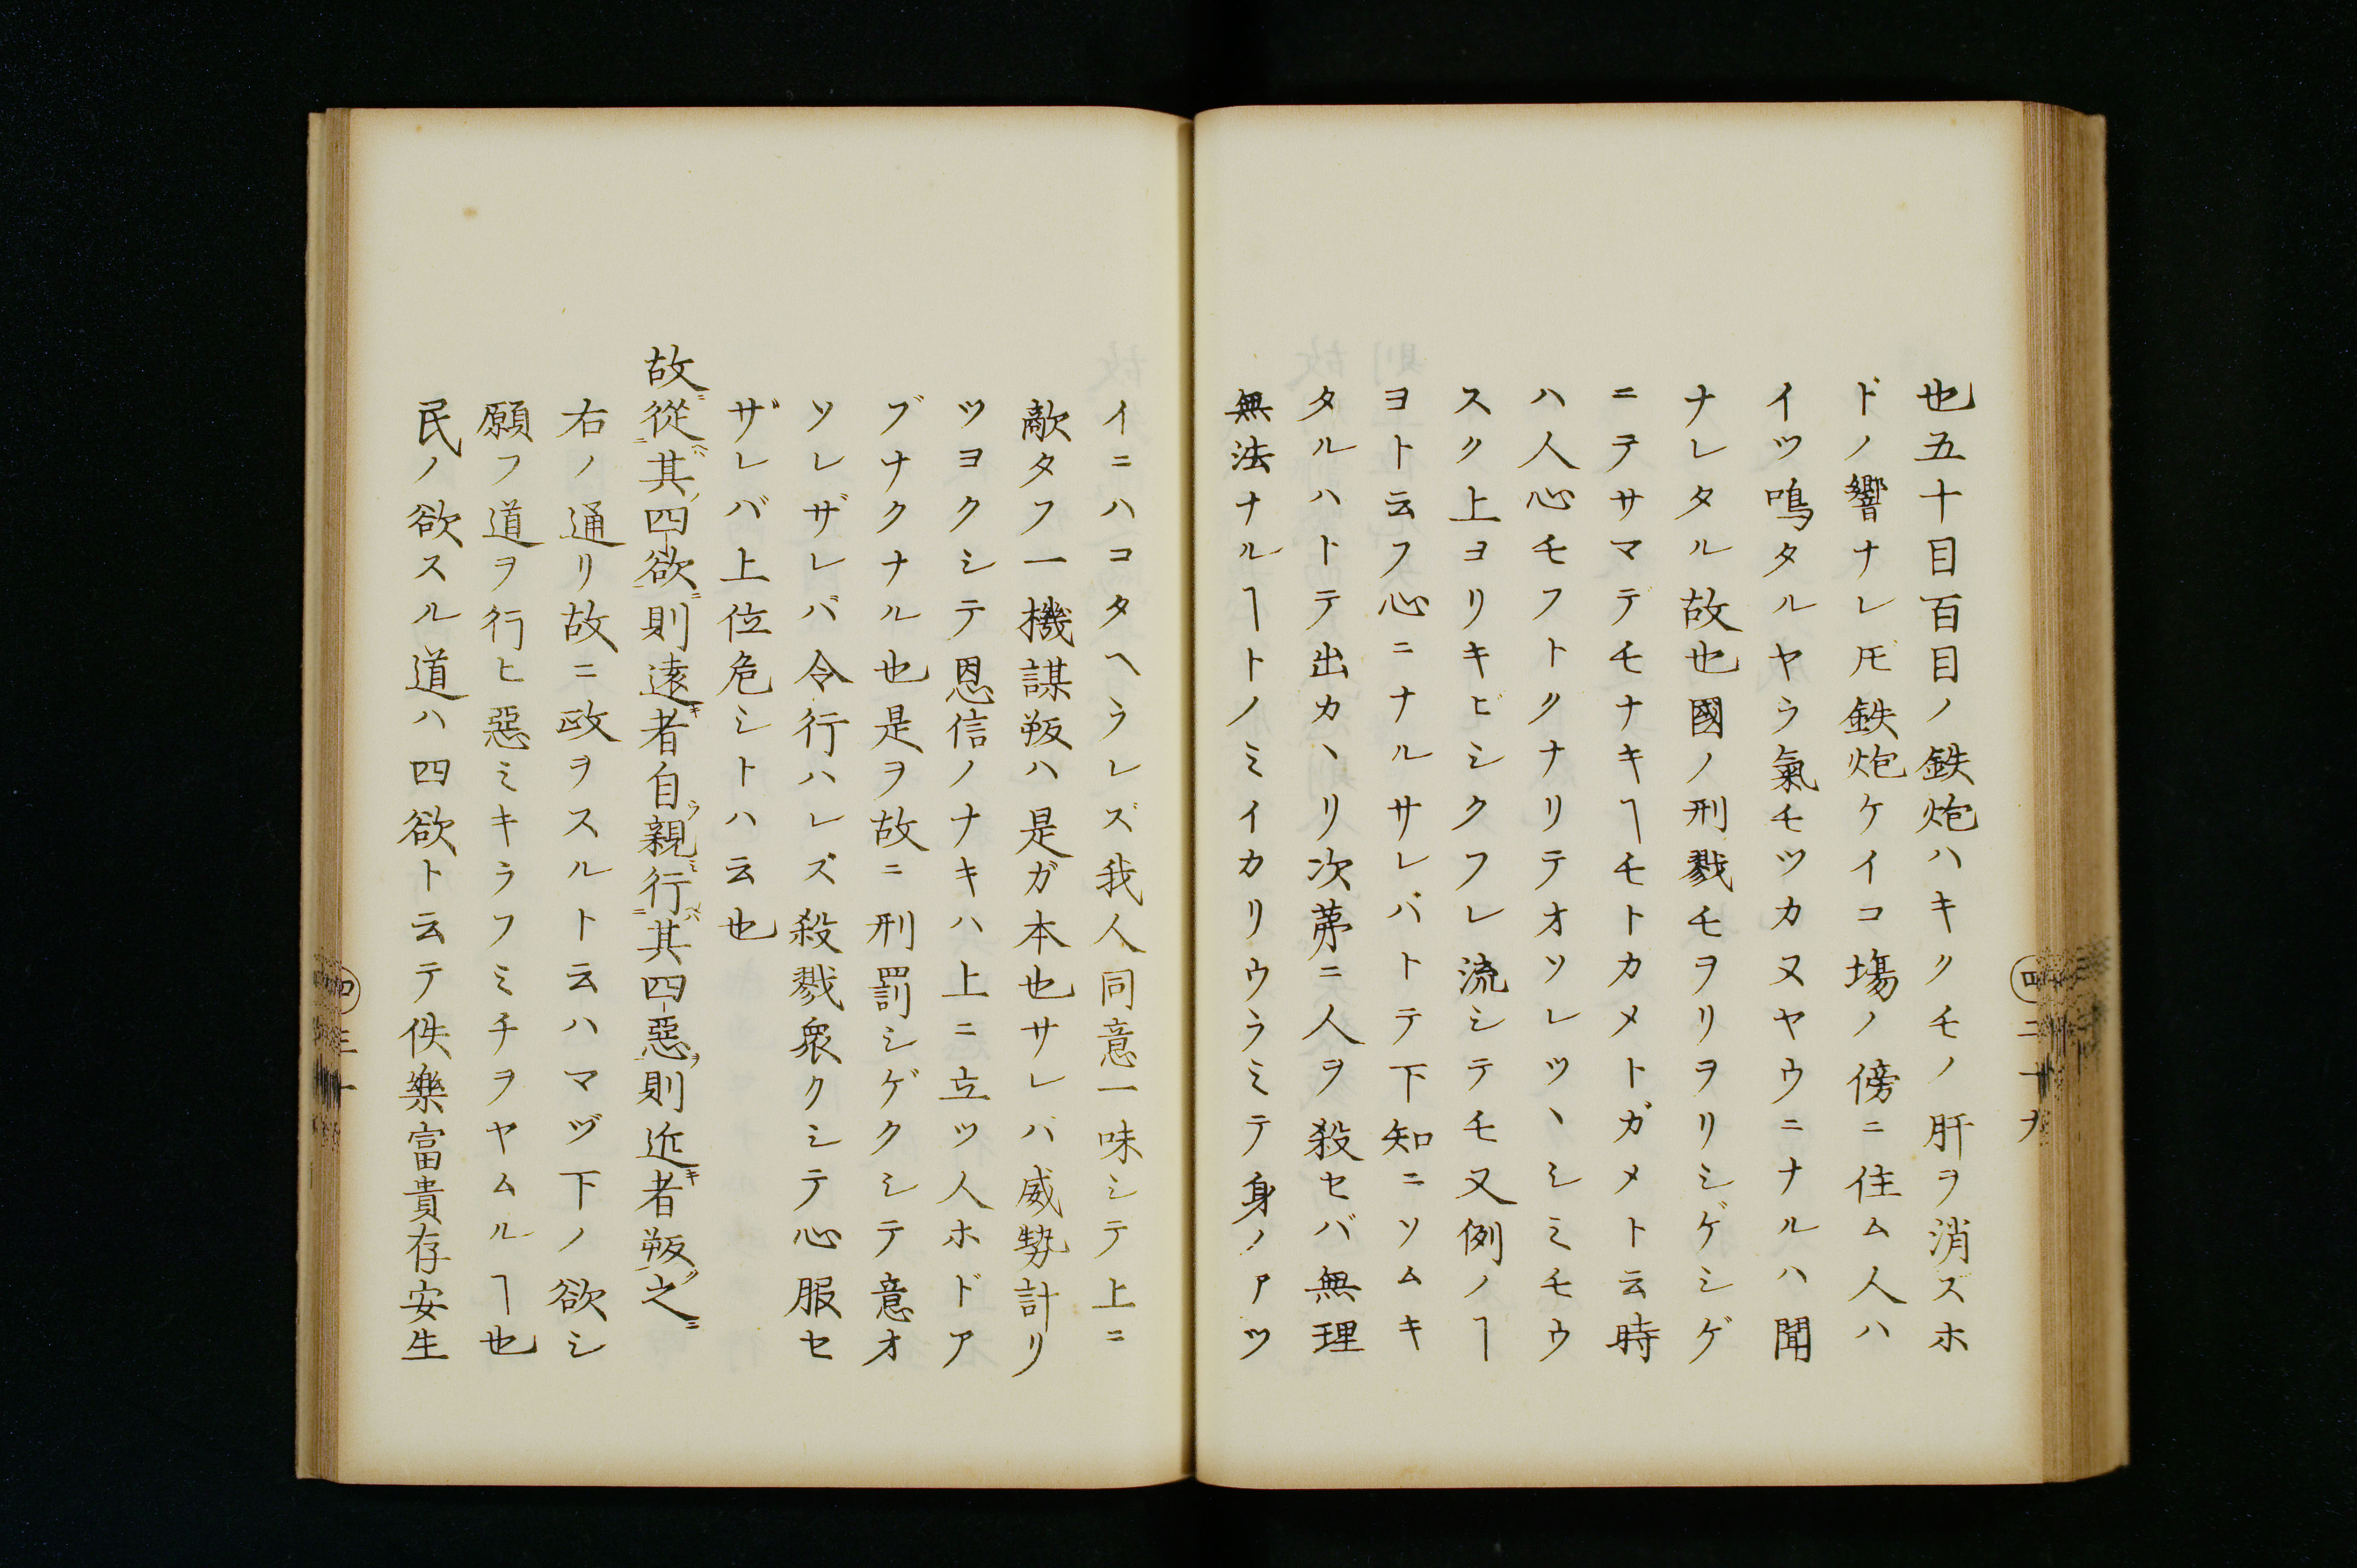 也五十目百目ノ鉄炮ハキクモノ肝ヲ消スホ
ドノ響ナレ𪜈鉄炮ケイコ塲ノ傍ニ住ム人ハ
イツ鳴タルヤラ氣モツカヌヤウニナルハ聞
ナレタル故也國ノ刑戮モヲリヲリシゲシゲ
ニテサマテモナキヿモトカメトガメト云時
ハ人心モフトクナリテオソレツヽシミモウ
スク上ヨリキビシクフレ流シテモ又例ノヿ
ヨト云フ心ニナルサレバトテ下知ニソムキ
タルハトテ出カヽリ次苐ニ人ヲ殺セバ無理
無法ナルヿトノミイカリウラミテ身ノアツ
イニハコタヘラレズ我人同意一味シテ上ニ
敵タフ一機謀叛ハ是ガ本也サレバ威勢計リ
ツヨクシテ恩信ノナキハ上ニ立ツ人ホドア
ブナクナル也是ヲ故ニ刑罰シゲクシテ意オ
ソレザレバ令行ハレズ殺戮衆クシテ心服セ
ザレバ上位危シトハ云也
故ニ從ヘバ其ノ四欲ニ則遠キ者自ラ親ミ行ヘバ其四惡ヲ則近キ者叛ク之ニ
右ノ通リ故ニ政ヲスルト云ハマヅ下ノ欲シ
願フ道ヲ行ヒ惡ミキラフミチヲヤムルヿ也
民ノ欲スル道ハ四欲ト云テ佚樂富貴存安生